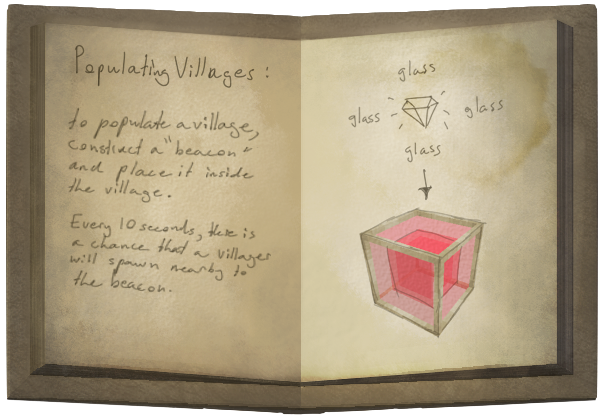 Populating Villages:
to populate a village,
construct a "beacon"
and place it inside
the village.
Every 10 seconds, there is
a chance that a villages
will spawn nearby to
the beacon.
glass
glass glass
glass